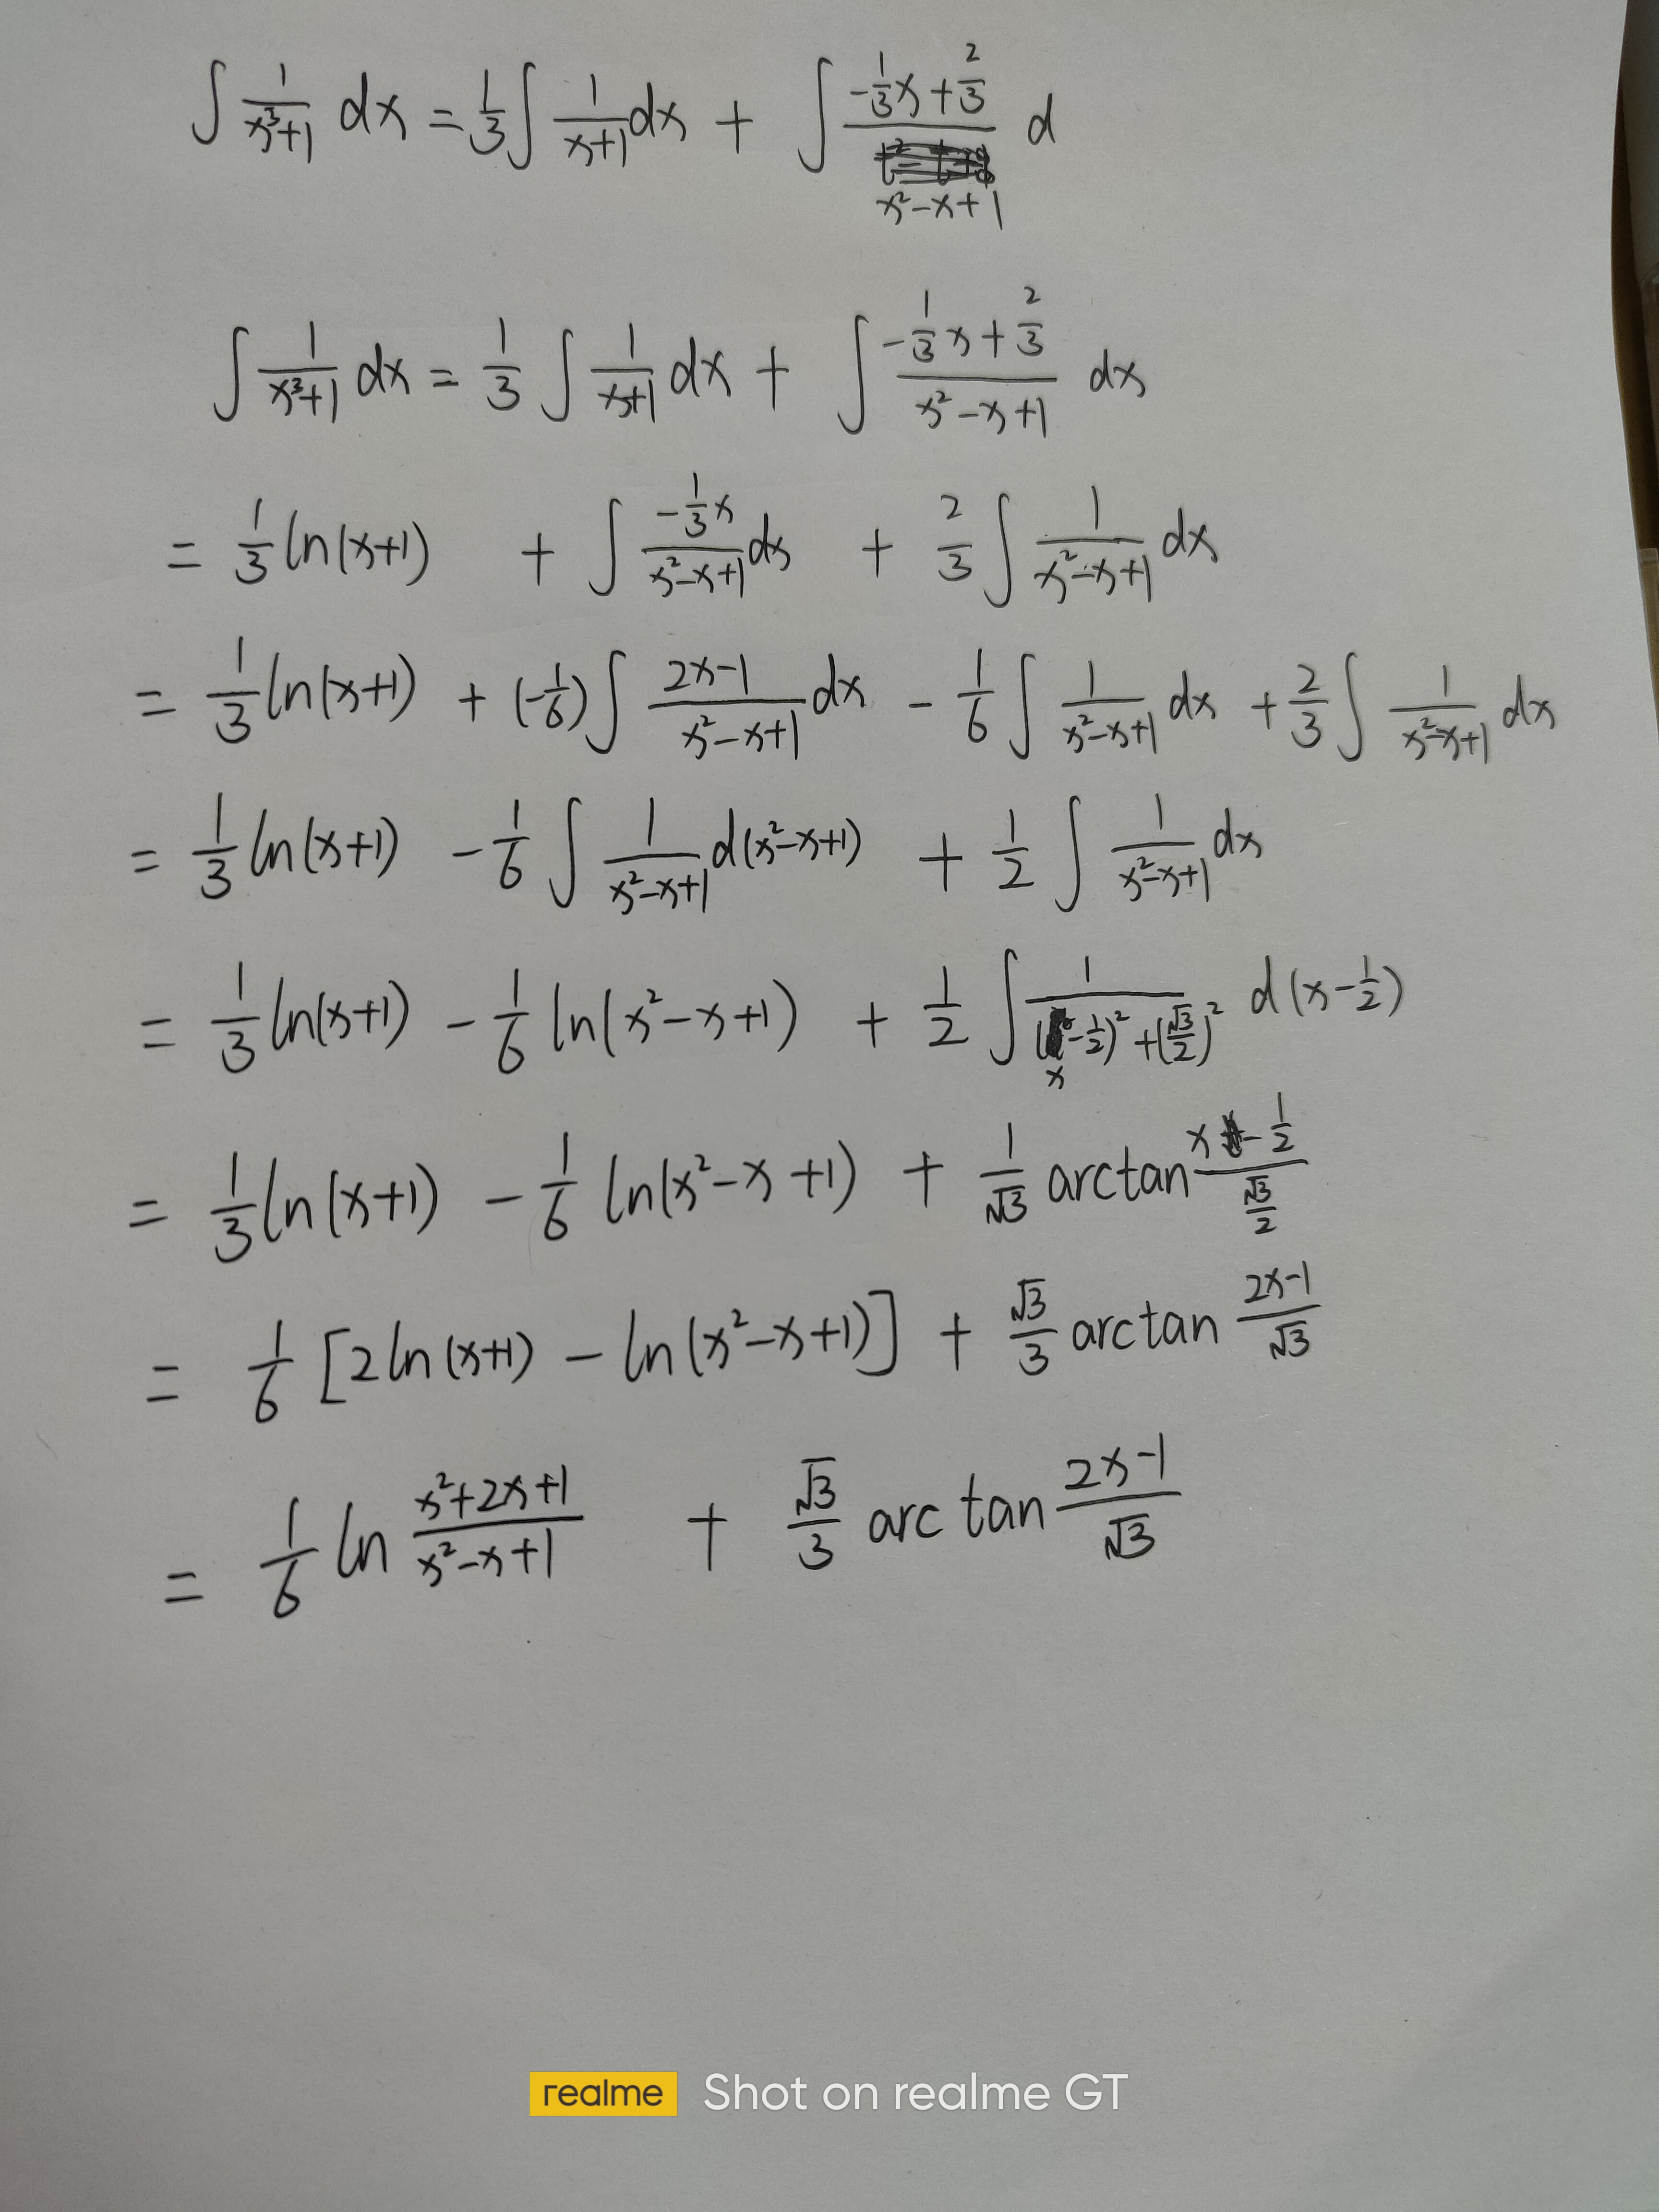 ∫ 1/(x³+1) dx = 1/3 ∫ 1/(x+1) dx + ∫ (-1/3 x + 2/3)/(x²-x+1) d
∫ 1/(x³+1) dx = 1/3 ∫ 1/(x+1) dx + ∫ (-1/3 x + 2/3)/(x²-x+1) dx
= 1/3 ln(x+1) + ∫ (-1/3 x)/(x²-x+1) dx + 2/3 ∫ 1/(x²-x+1) dx
= 1/3 ln(x+1) + (-1/6) ∫ (2x-1)/(x²-x+1) dx - 1/6 ∫ 1/(x²-x+1) dx + 2/3 ∫ 1/(x²-x+1) dx
= 1/3 ln(x+1) - 1/6 ∫ 1/(x²-x+1) d(x²-x+1) + 1/2 ∫ 1/(x²-x+1) dx
= 1/3 ln(x+1) - 1/6 ln(x²-x+1) + 1/2 ∫ 1/((x-1/2)²+(√3/2)²) d(x-1/2)
= 1/3 ln(x+1) - 1/6 ln(x²-x+1) + 1/√3 arctan (x-1/2)/(√3/2)
= 1/6 [2ln(x+1) - ln(x²-x+1)] + √3/3 arctan (2x-1)/√3
= 1/6 ln (x²+2x+1)/(x²-x+1) + √3/3 arctan (2x-1)/√3
realme Shot on realme GT